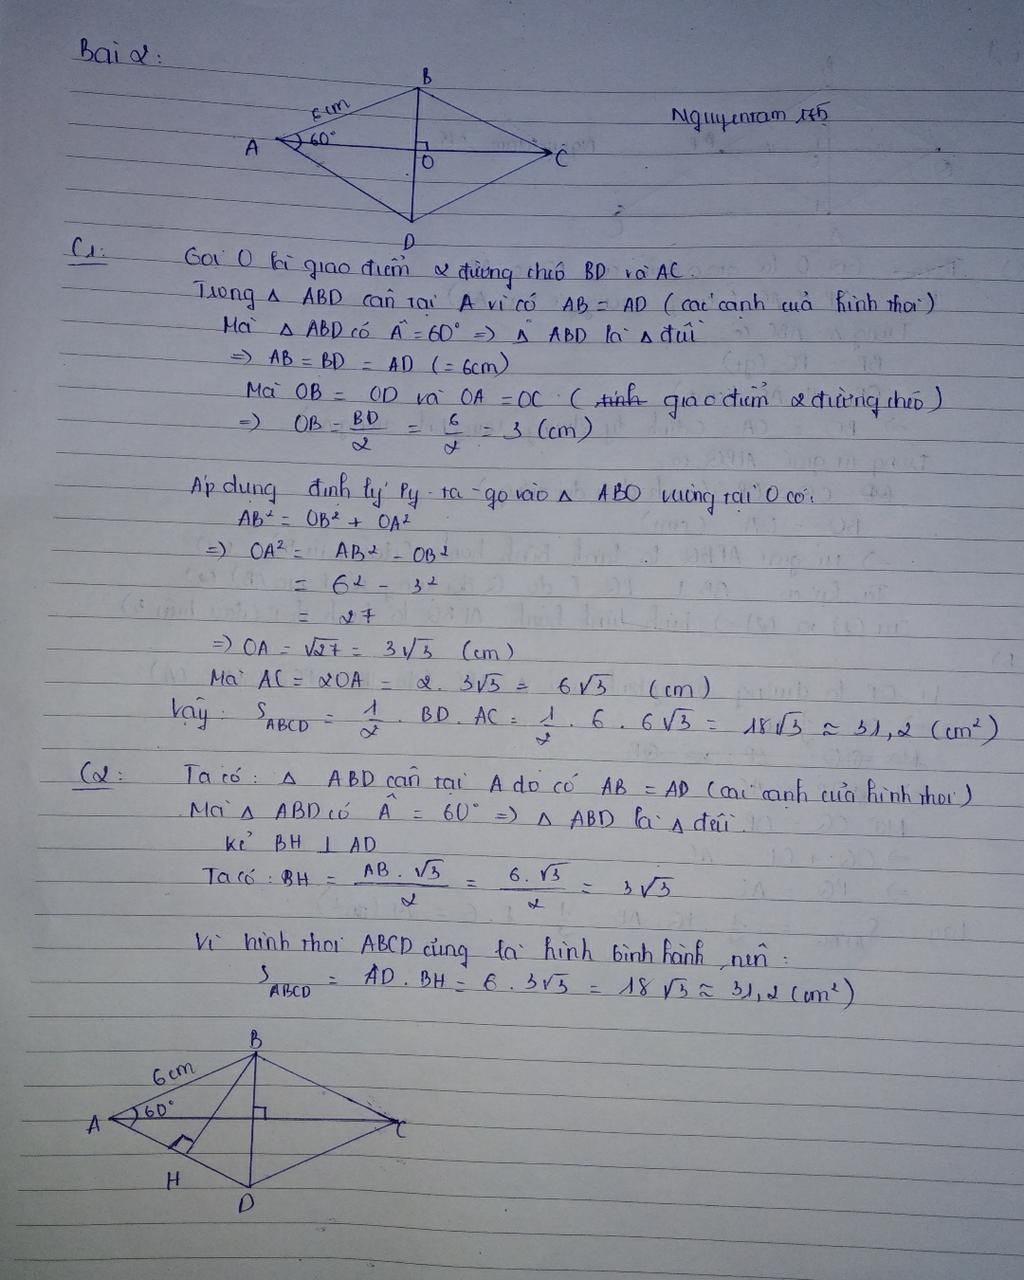 Bài 2:
B
6cm
Nguyentam
A
60°
O
C
D
C1:
Gọi O là giao điểm 2 đường chéo BD và AC
Trong Δ ABD cân tại A vì có AB = AD (các cạnh của hình thoi)
Mà Δ ABD có Â = 60° => Δ ABD là Δ đều
=> AB = BD = AD (= 6cm)
Mà OB = OD và OA = OC (tính giao điểm 2 đường chéo)
=> OB = BD/2 = 6/2 = 3 (cm)
Áp dụng định lý Py-ta-go vào Δ ABO vuông tại O có:
AB² = OB² + OA²
=> OA² = AB² - OB²
= 6² - 3²
= 27
=> OA = √27 = 3√3 (cm)
Mà AC = 2OA = 2. 3√3 = 6√3 (cm)
Vậy: S ABCD = 1/2 . BD . AC = 1/2 . 6 . 6√3 = 18√3 ≈ 31,2 (cm²)
C2: Ta có: Δ ABD cân tại A do có AB = AD (các cạnh của hình thoi)
Mà Δ ABD có Â = 60° => Δ ABD là Δ đều.
Kẻ BH ⊥ AD
Ta có: BH = AB . √3/2 = 6 . √3/2 = 3√3
Vì hình thoi ABCD cũng là hình bình hành nên:
S ABCD = AD . BH = 6 . 3√3 = 18√3 ≈ 31,2 (cm²)
B
6cm
A
60°
C
H
D